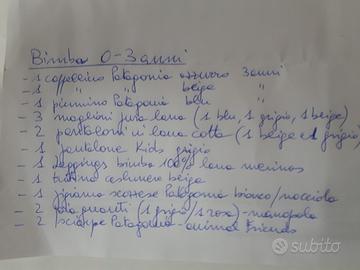 Bimba 0-3 anni
- 1 cappellino Patagonia azzurro 3 anni
- 1 " " beige "
- 1 piumino Patagonia blu "
- 3 maglioni pura lana (1 blu, 1 grigio, 1 beige)
- 2 pantaloni in lana cotta (1 beige e 1 grigio)
- 1 pantalone Kids grigio
- 1 leggings bimba 100% lana merinos
- 1 tutina cashmere beige
- 1 pigiama scozzese Patagonia bianco/nocciola
- 2 paia guanti (1 grigio/1 rosa) - manopola
- 2 sciarpe Patagonia - animal Friends
subito